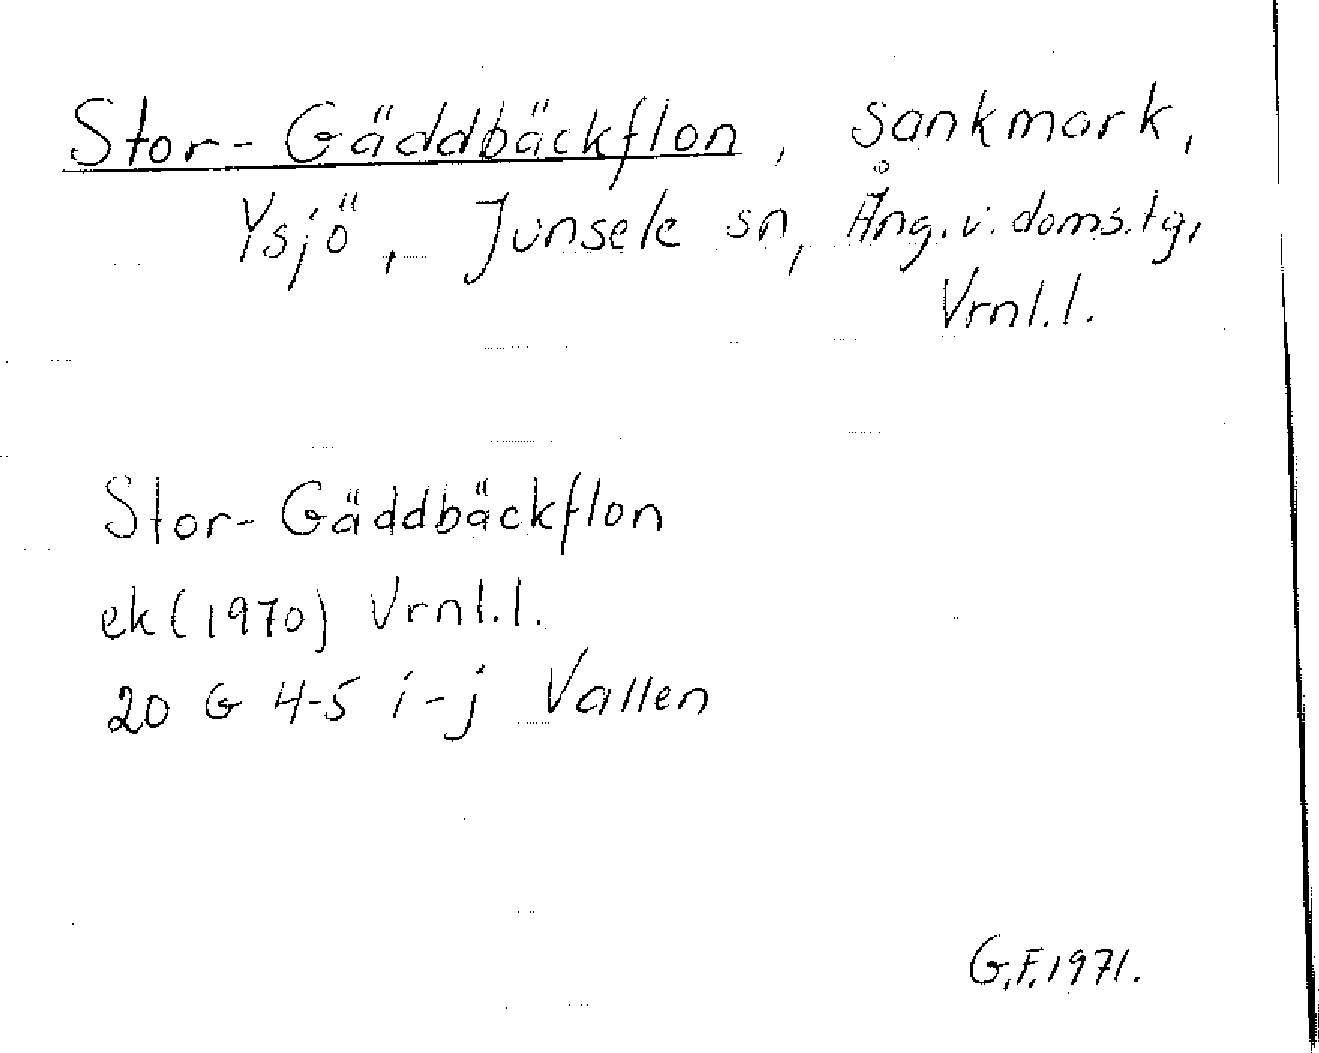 Stor-Gäddbäckflon, sankmark,
Ysjö, Junsele sn, Ång. v. doms.lg,
Vrnl.l.
Stor-Gäddbäckflon
ek (1970) Vrnl.l.
20 G 4-5 i-j Vallen
G.F. 1971.